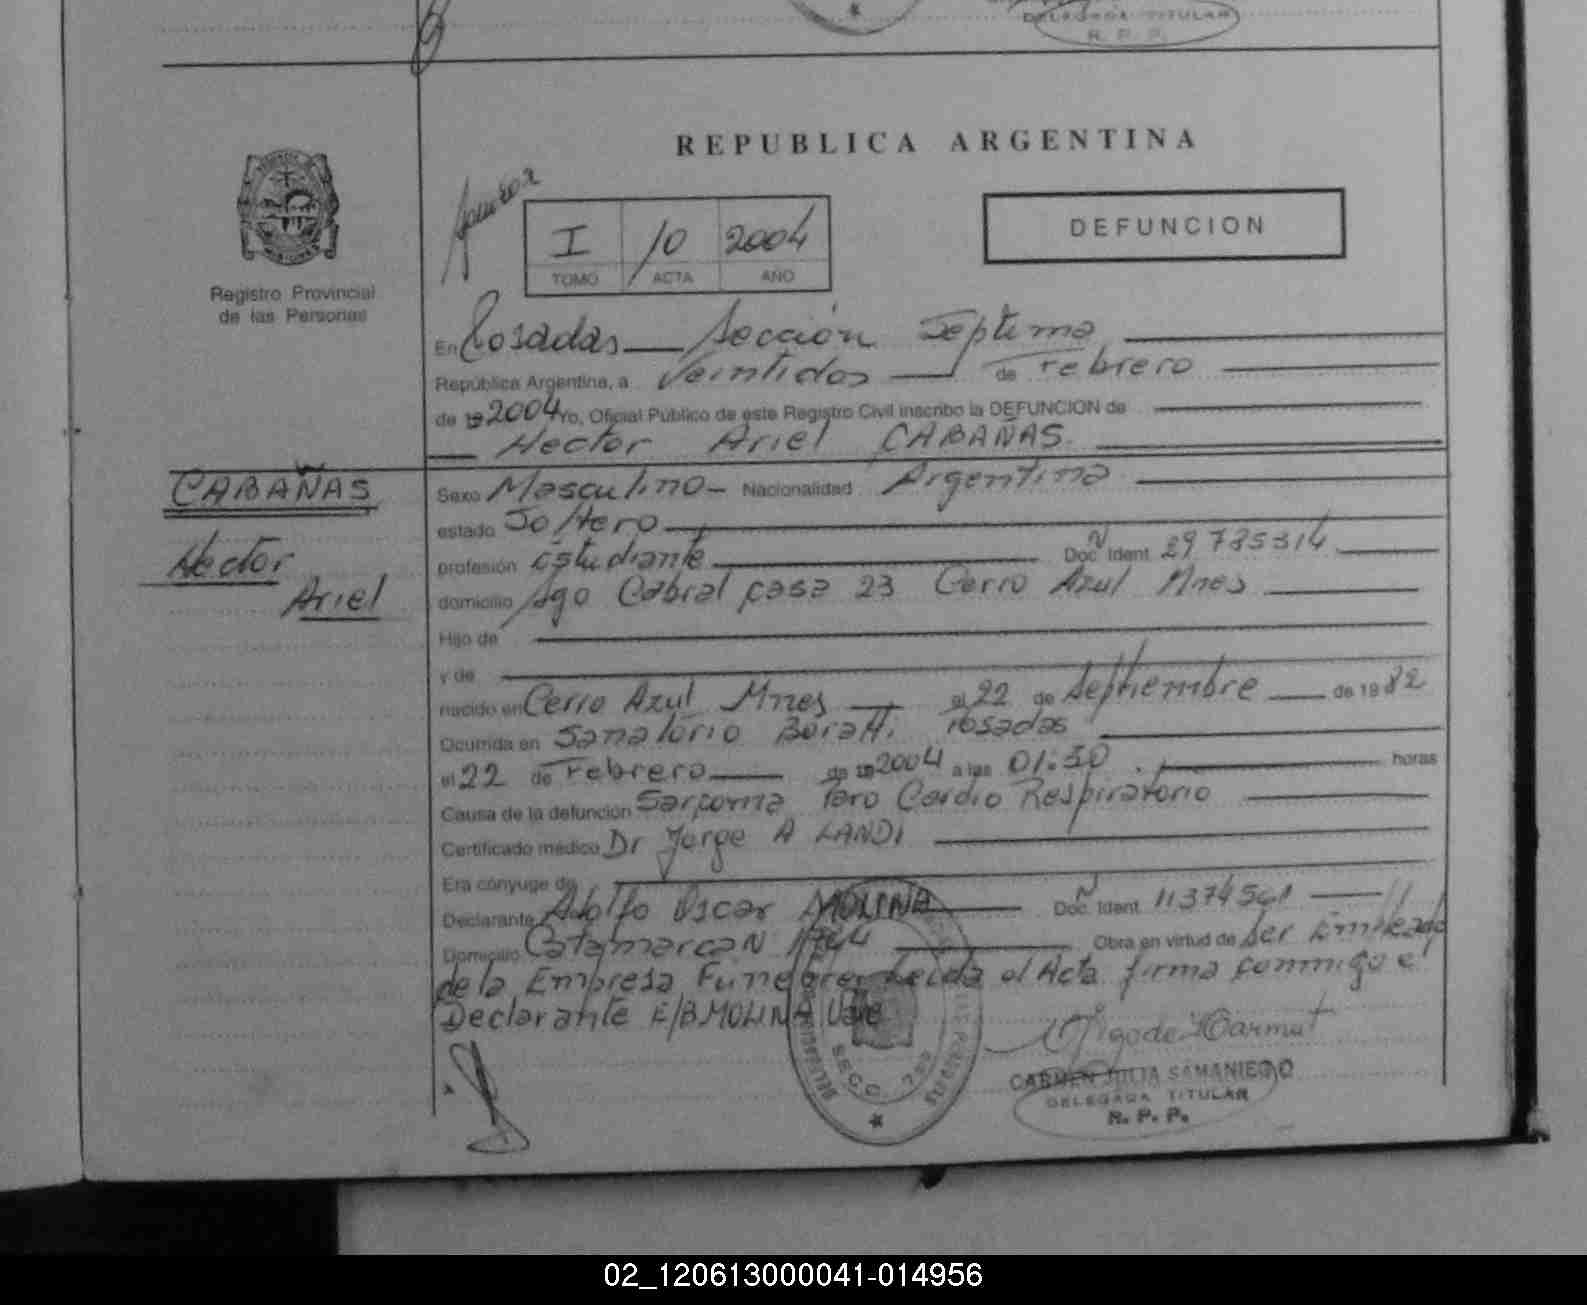 DELEGADA TITULAR
R. P. P.
REPUBLICA ARGENTINA
I 10 2004
TOMO ACTA AÑO
DEFUNCION
Registro Provincial
de las Personas
En Posadas Sección Septima
República Argentina, a Veintidos de Febrero
de 19 2004 Yo, Oficial Público de este Registro Civil inscribo la DEFUNCION de
Hector Ariel CABAÑAS
CABAÑAS
Hector
Ariel
Sexo Masculino Nacionalidad Argentina
estado Soltero
profesión Estudiante Doc. Ident. N 29735314
domicilio Sgo Cabral casa 23 Cerro Azul Mnes
Hijo de
y de
nacido en Cerro Azul Mnes el 22 de Septiembre de 1982
Ocurrida en Sanatorio Boratti Posadas
el 22 de Febrero de 19 2004 a las 01:30 horas
Causa de la defunción Sarcoma Paro Cardio Respiratorio
Certificado médico Dr Jorge A LANDI
Era cónyuge de
Declarante Adolfo Oscar MOLINA Doc. Ident. N 11374561
Domicilio Catamarca N Obra en virtud de Ser Empleado
de la Empresa Funebre Leida el Acta firma conmigo el
Declarante E/B.MOLINA Vale
SECC. 7ma
CARMEN JULIA SAMANIEGO
DELEGADA TITULAR
R. P. P.
02_120613000041-014956